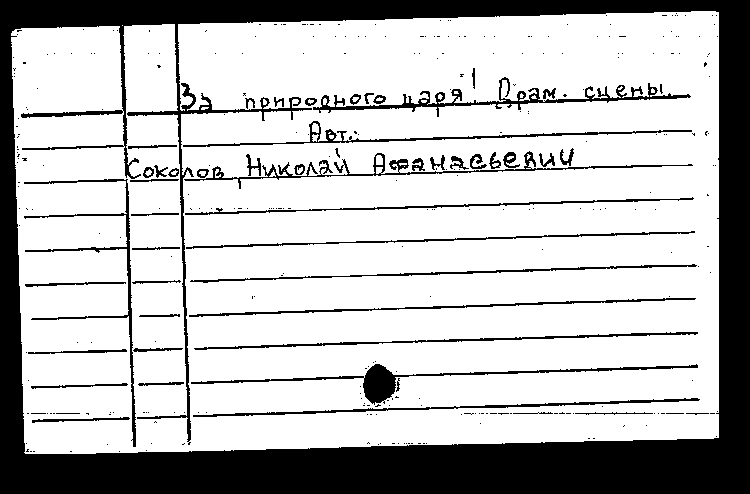 За природного царя! Драм. сцены.
Авт.:
Соколов, Николай Афанасьевич